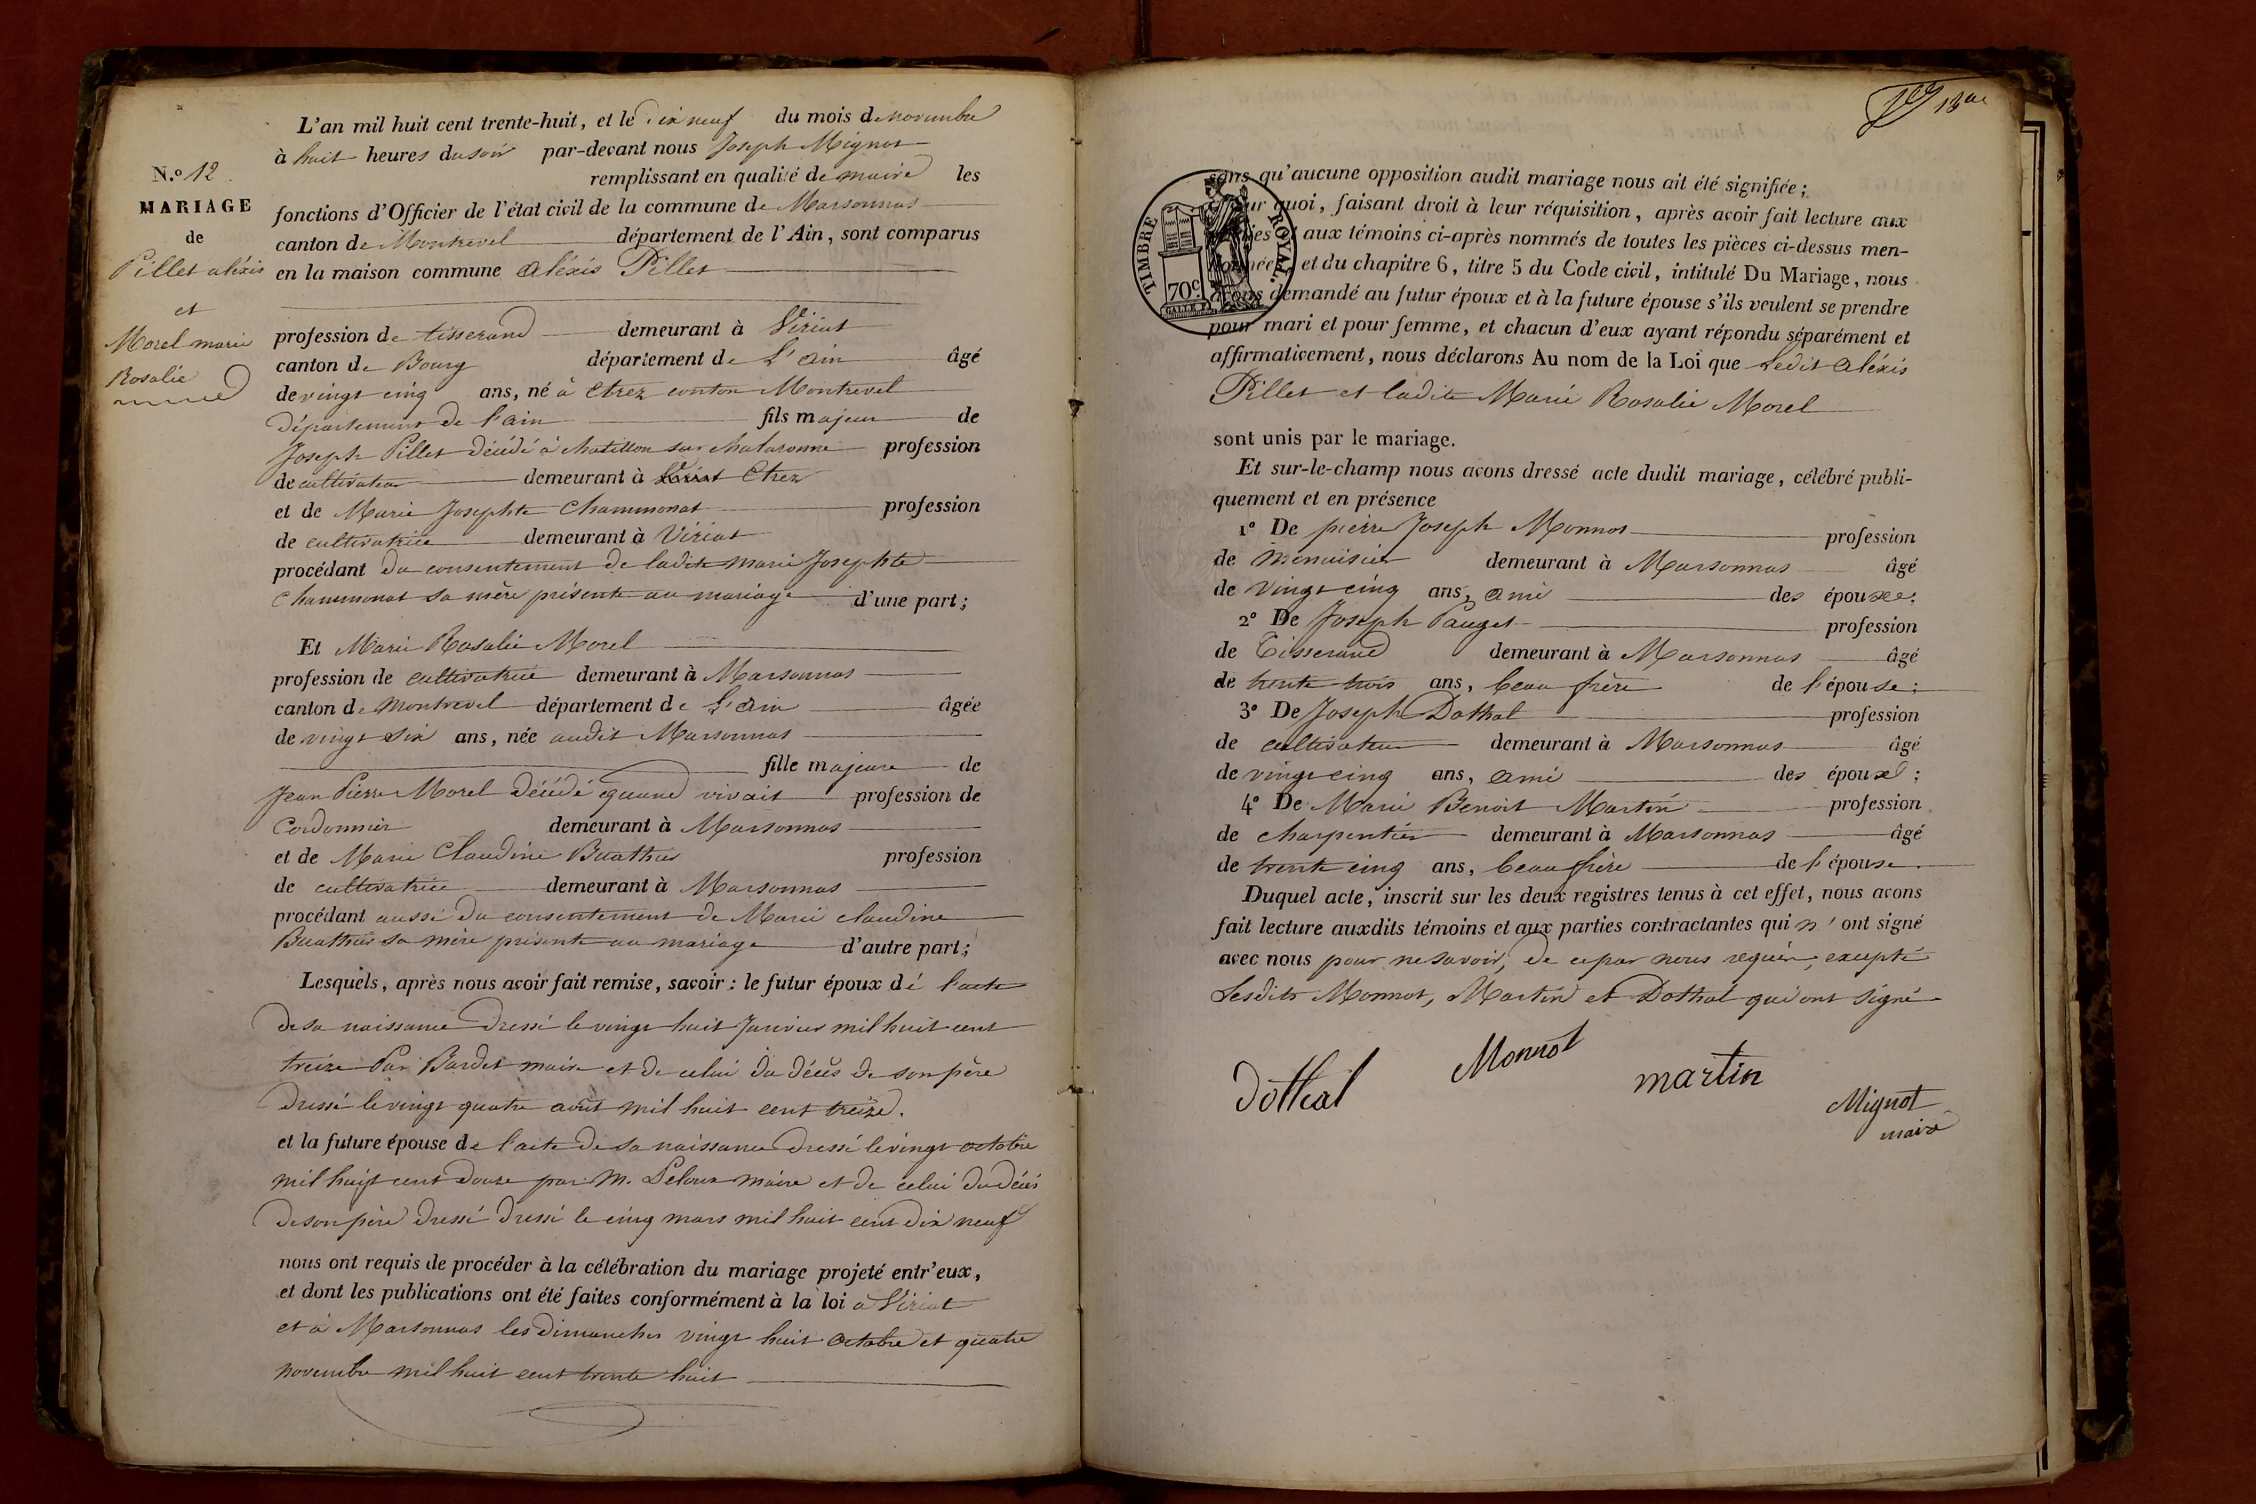 L'an mil huit cent trente-huit, et le dix neuf du mois de novembre
à huit heures du soir par-devant nous Joseph Mignot
remplissant en qualité de maire les
N.º 12
MARIAGE
de
Pillet aléxis
et
Morel marie
Rosalie
fonctions d'Officier de l'état civil de la commune de Marsonnas
canton de Montrevel département de l'Ain, sont comparus
en la maison commune Aléxis Pillet
profession de tisserand demeurant à Viriat
canton de Bourg département de L'ain âgé
de vingt cinq ans, né à Etrez conton Montrevel
département de l'ain fils majeur de
Joseph Pillet décédé à chatillon sur chalaronne profession
de cultivateur demeurant à Viriat Etrez
et de Marie Josephte Chammonat profession
de cultivatrice demeurant à Viriat
procédant du consentement de ladite marie Josephte
Chammonat sa mère présente au mariage d'une part;
Et Marie Rosalie Morel
profession de cultivatrice demeurant à Marsonnas
canton de Montrevel département de L'ain âgée
de vingt six ans, née audit Marsonnas
fille majeure de
Jean Pierre Morel décédé quand vivait profession de
Cordonnier demeurant à Marsonnas
et de Marie Claudine Buathier profession
de cultivatrice demeurant à Marsonnas
procédant aussi du consentement de Marie claudine
Buathier sa mère présente au mariage d'autre part;
Lesquels, après nous avoir fait remise, savoir: le futur époux de l'acte
de sa naissance dressé le vingt huit Janvier mil huit cent
treize Par Bardet maire et de celui du décès de son père
dressé le vingt quatre août mil huit cent treize.
et la future épouse de l'acte de sa naissance dressé le vingt octobre
mil huit cent douze par M. Peloux maire et de celui du décès
de son père dressé dressé le cinq mars mil huit cent dix neuf
nous ont requis de procéder à la célébration du mariage projeté entr'eux,
et dont les publications ont été faites conformément à la loi à Viriat
et à Marsonnas les dimanches vingt huit octobre et quatre
novembre mil huit cent trente huit
TIMBRE ROYAL.
70c
sans qu'aucune opposition audit mariage nous ait été signifiée;
quoi, faisant droit à leur réquisition, après avoir fait lecture aux
aux témoins ci-après nommés de toutes les pièces ci-dessus men-
et du chapitre 6, titre 5 du Code civil, intitulé Du Mariage, nous
avons demandé au futur époux et à la future épouse s'ils veulent se prendre
pour mari et pour femme, et chacun d'eux ayant répondu séparément et
affirmativement, nous déclarons Au nom de la Loi que Ledit Aléxis
Pillet et ladite Marie Rosalie Morel
sont unis par le mariage.
Et sur-le-champ nous avons dressé acte dudit mariage, célébré publi-
quement et en présence
1º De pierre Joseph Monnot profession
de menuisier demeurant à Marsonnas âgé
de vingt cinq ans, ami des époux;
2º De Joseph Pauget profession
de Tisserand demeurant à Marsonnas âgé
de trente trois ans, beau frère de l'épouse;
3º De Joseph Dothal profession
de cultivateur demeurant à Marsonnas âgé
de vingt cinq ans, ami des époux;
4º De Marie Benoit Martin profession
de charpentier demeurant à Marsonnas âgé
de trente cinq ans, beau frère de l'épouse.
Duquel acte, inscrit sur les deux registres tenus à cet effet, nous avons
fait lecture auxdits témoins et aux parties contractantes qui n'ont signé
avec nous pour ne savoir, de ce par nous requis, excepté
Lesdits Monnot, Martin et Dothal qui ont signé
Dothal Monnot martin
Mignot
maire